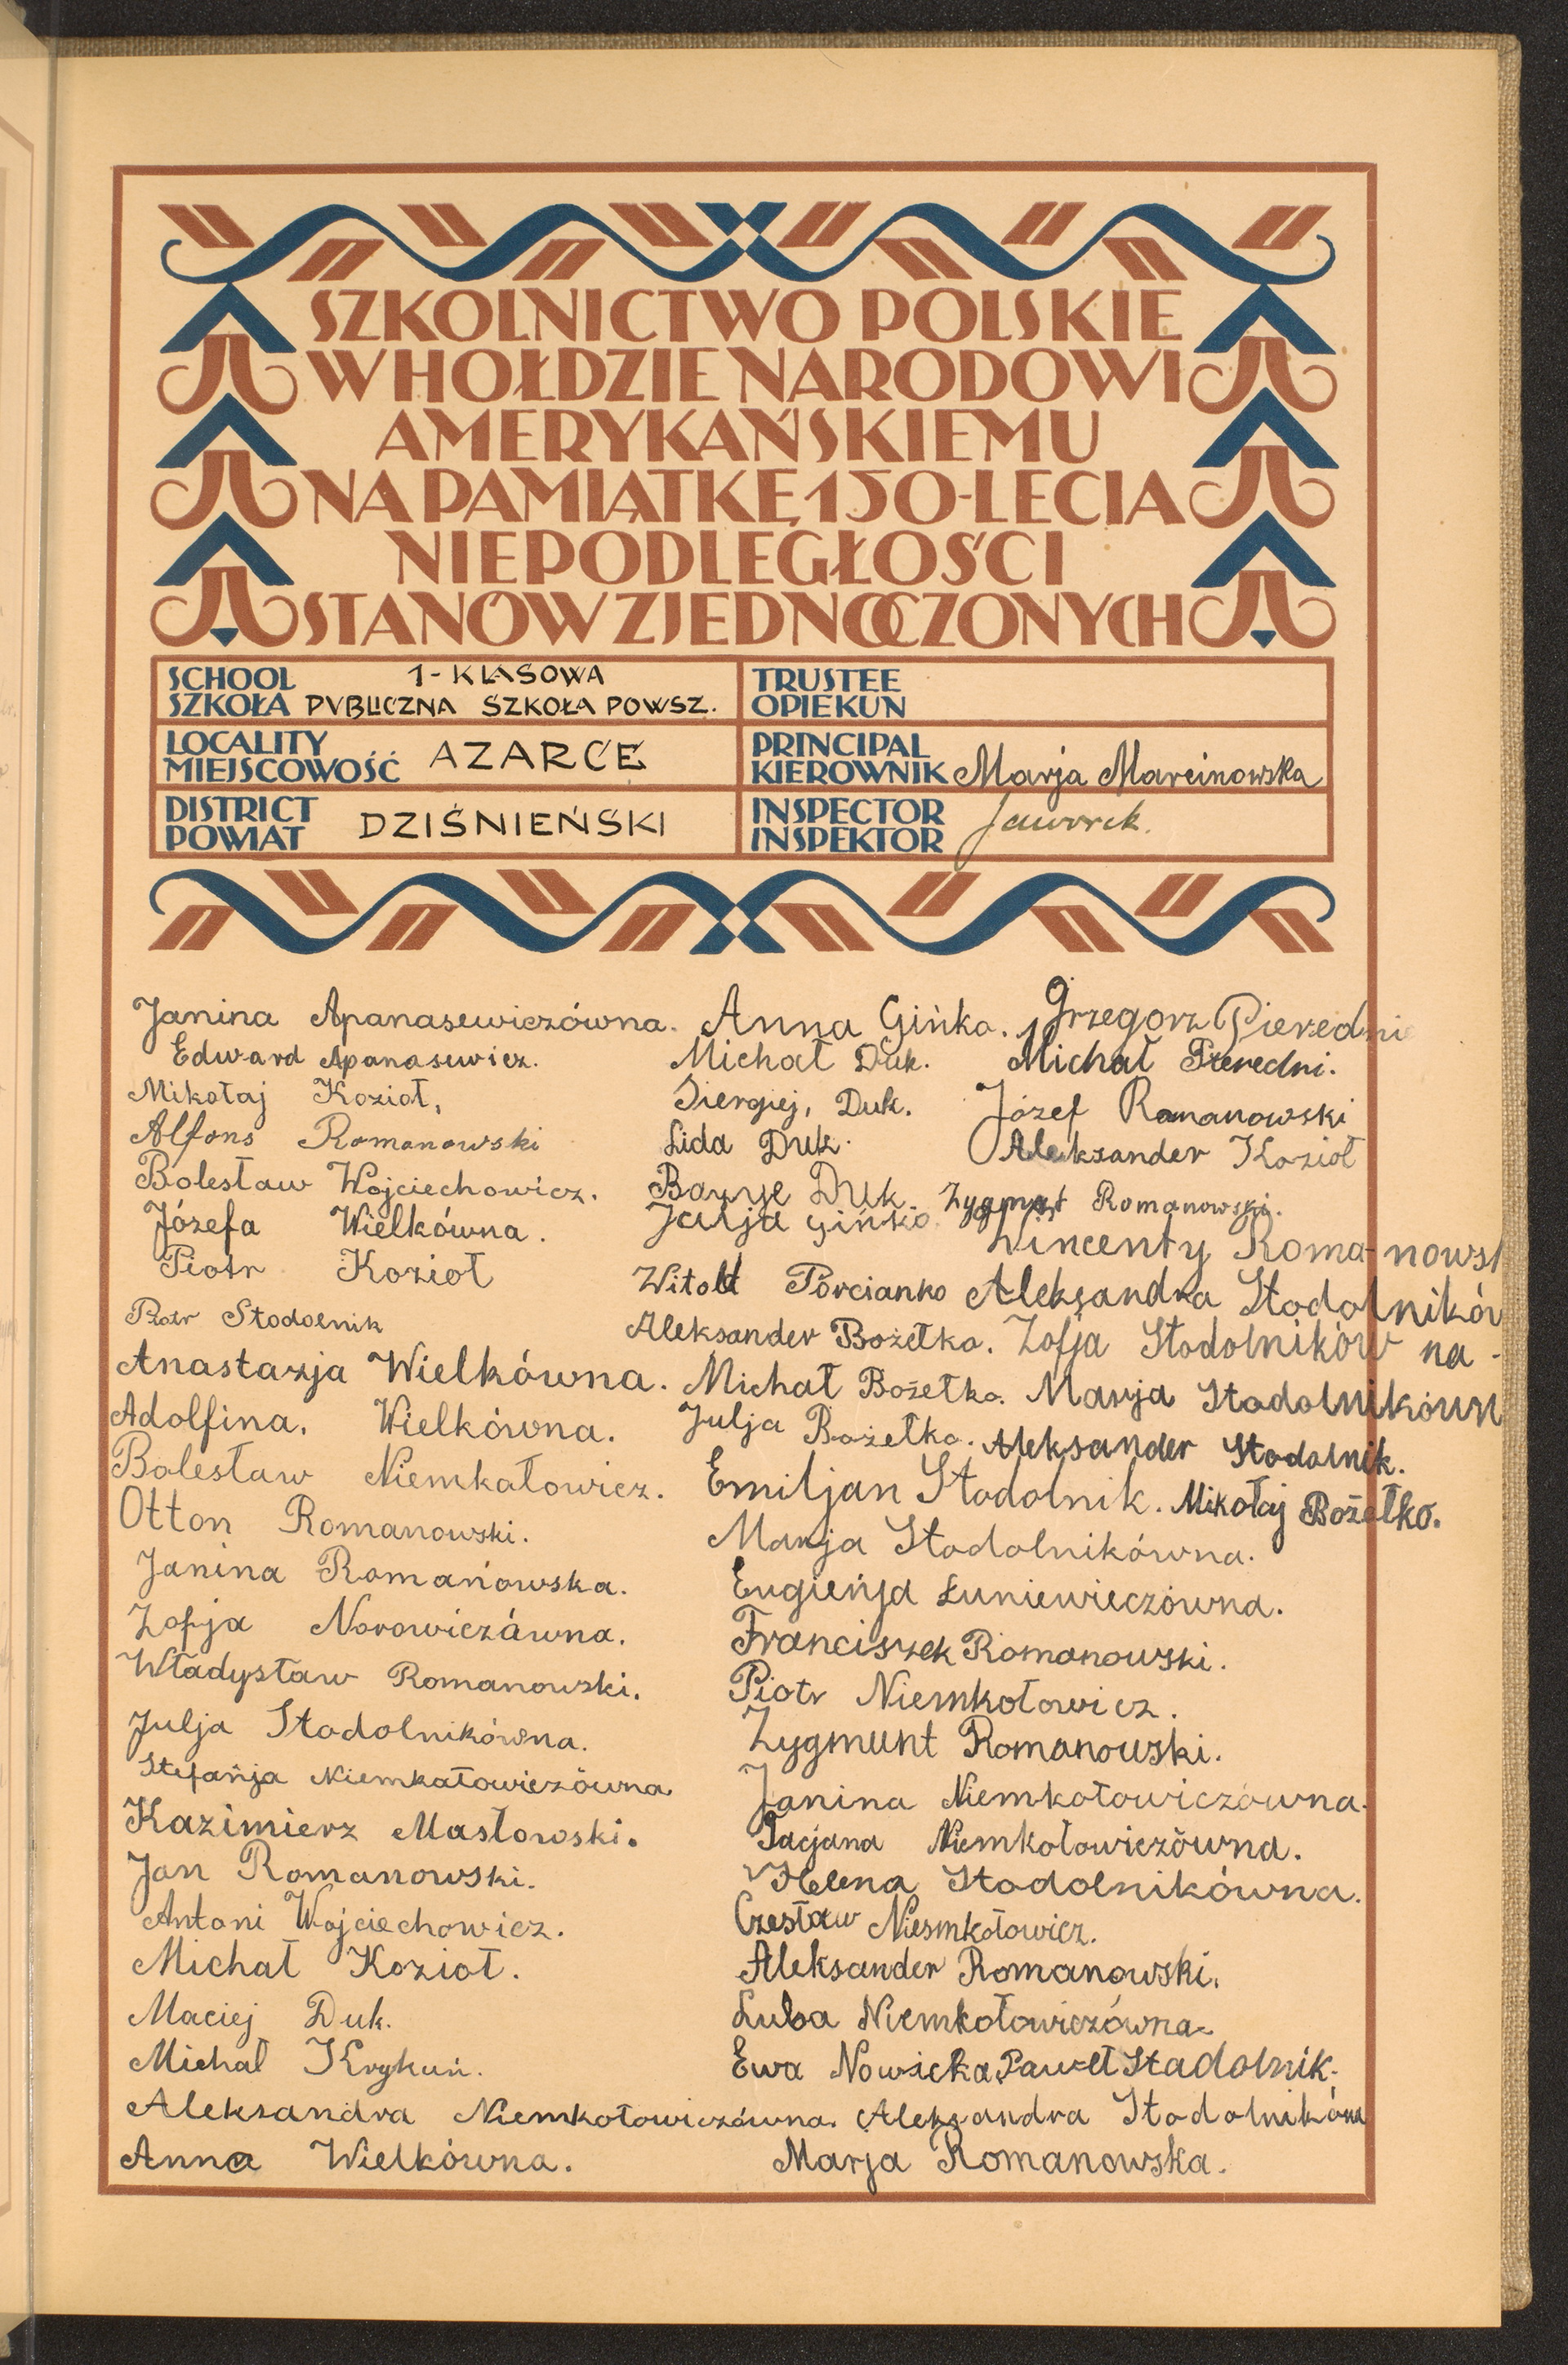 SZKOLNICTWO POLSKIE
W HOŁDZIE NARODOWI
AMERYKAŃSKIEMU
NA PAMIĄTKĘ 150-LECIA
NIEPODLEGŁOŚCI
STANÓW ZJEDNOCZONYCH
SCHOOL
SZKOŁA
1-KLASOWA
PVBLICZNA SZKOŁA POWSZ.
TRUSTEE
OPIEKUN
LOCALITY
MIEJSCOWOŚĆ
AZARCE
PRINCIPAL
KIEROWNIK
Marja Marcinowska
DISTRICT
POWIAT
DZIŚNIEŃSKI
INSPECTOR
INSPEKTOR
Jaworek.
Janina Apanasewiczówna.
Edward Apanasewicz.
Mikołaj Kozioł,
Alfons Romanowski
Bolesław Wojciechowicz.
Józefa Wielkówna.
Piotr Kozioł
Piotr Stodolnik
Anastazja Wielkówna.
Adolfina. Wielkówna.
Bolesław Niemkałowicz.
Otton Romanowski.
Janina Romańowska.
Zofja Norowiczówna.
Władysław Romanowski.
Julja Stodolnikówna.
Stefańja Niemkałowiczówna
Kazimierz Masłowski.
Jan Romanowski.
Antoni Wojciechowicz.
Michał Kozioł.
Maciej Duk.
Michał Krykuń.
Aleksandra Niemkołowiczówna.
Anna Wielkówna.
Anna Gińko.
Michał Duk.
Siergiej, Duk.
Lida Duk.
Duk.
Gińko.
Witold Porcianko
Aleksander Bożełko.
Michał Bożełko.
Julja Bożełko.
Emiljan Stodolnik.
Marja Stodolnikówna.
Eugieńja Łuniewiczówna.
Franciszek Romanowski.
Piotr Niemkołowicz.
Zygmunt Romanowski.
Janina Niemkołowiczówna.
Tacjana Niemkołowiczówna.
Helena Stodolnikówna.
Czesław Niesmkołowicz.
Aleksander Romanowski.
Luba Niemkołowiczówna
Ewa Nowicka Paweł Stadolnik.
Aleksandra Stodolnikówna
Marja Romanowska.
Grzegorz Pieredni
Michał Pieredni.
Józef Romanowski
Aleksander Kozioł
Zygmunt Romanowski.
Wincenty Roma-nowsk
Aleksandra Stodolników
Zofja Stodolnikówna-
Marja Stodolnikówn
Aleksander Stodolnik.
Mikołaj Bożełko.